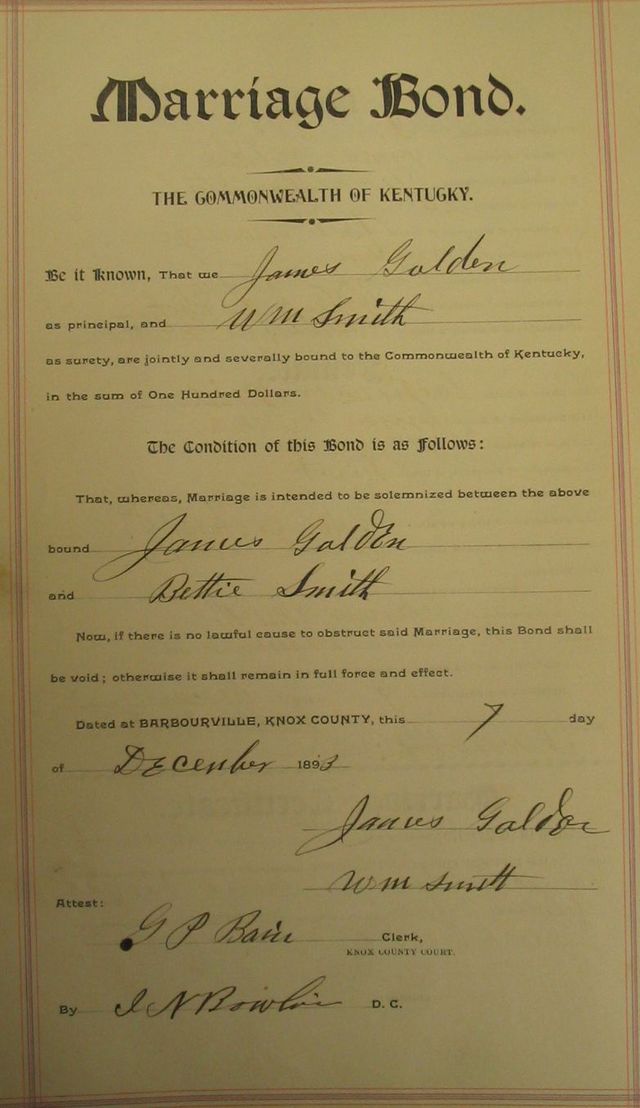 Marriage Bond.
THE COMMONWEALTH OF KENTUCKY.
Be it Known, That we James Golden
as principal, and Wm Smith
as surety, are jointly and severally bound to the Commonwealth of Kentucky,
in the sum of One Hundred Dollars.
The Condition of this Bond is as Follows:
That, whereas, Marriage is intended to be solemnized between the above
bound James Golden
and Bettie Smith
Now, if there is no lawful cause to obstruct said Marriage, this Bond shall
be void; otherwise it shall remain in full force and effect.
Dated at BARBOURVILLE, KNOX COUNTY, this 7 day
of December 1893
James Golden
Wm Smith
Attest:
G P Bain Clerk,
KNOX COUNTY COURT.
By J N Bowlin D. C.